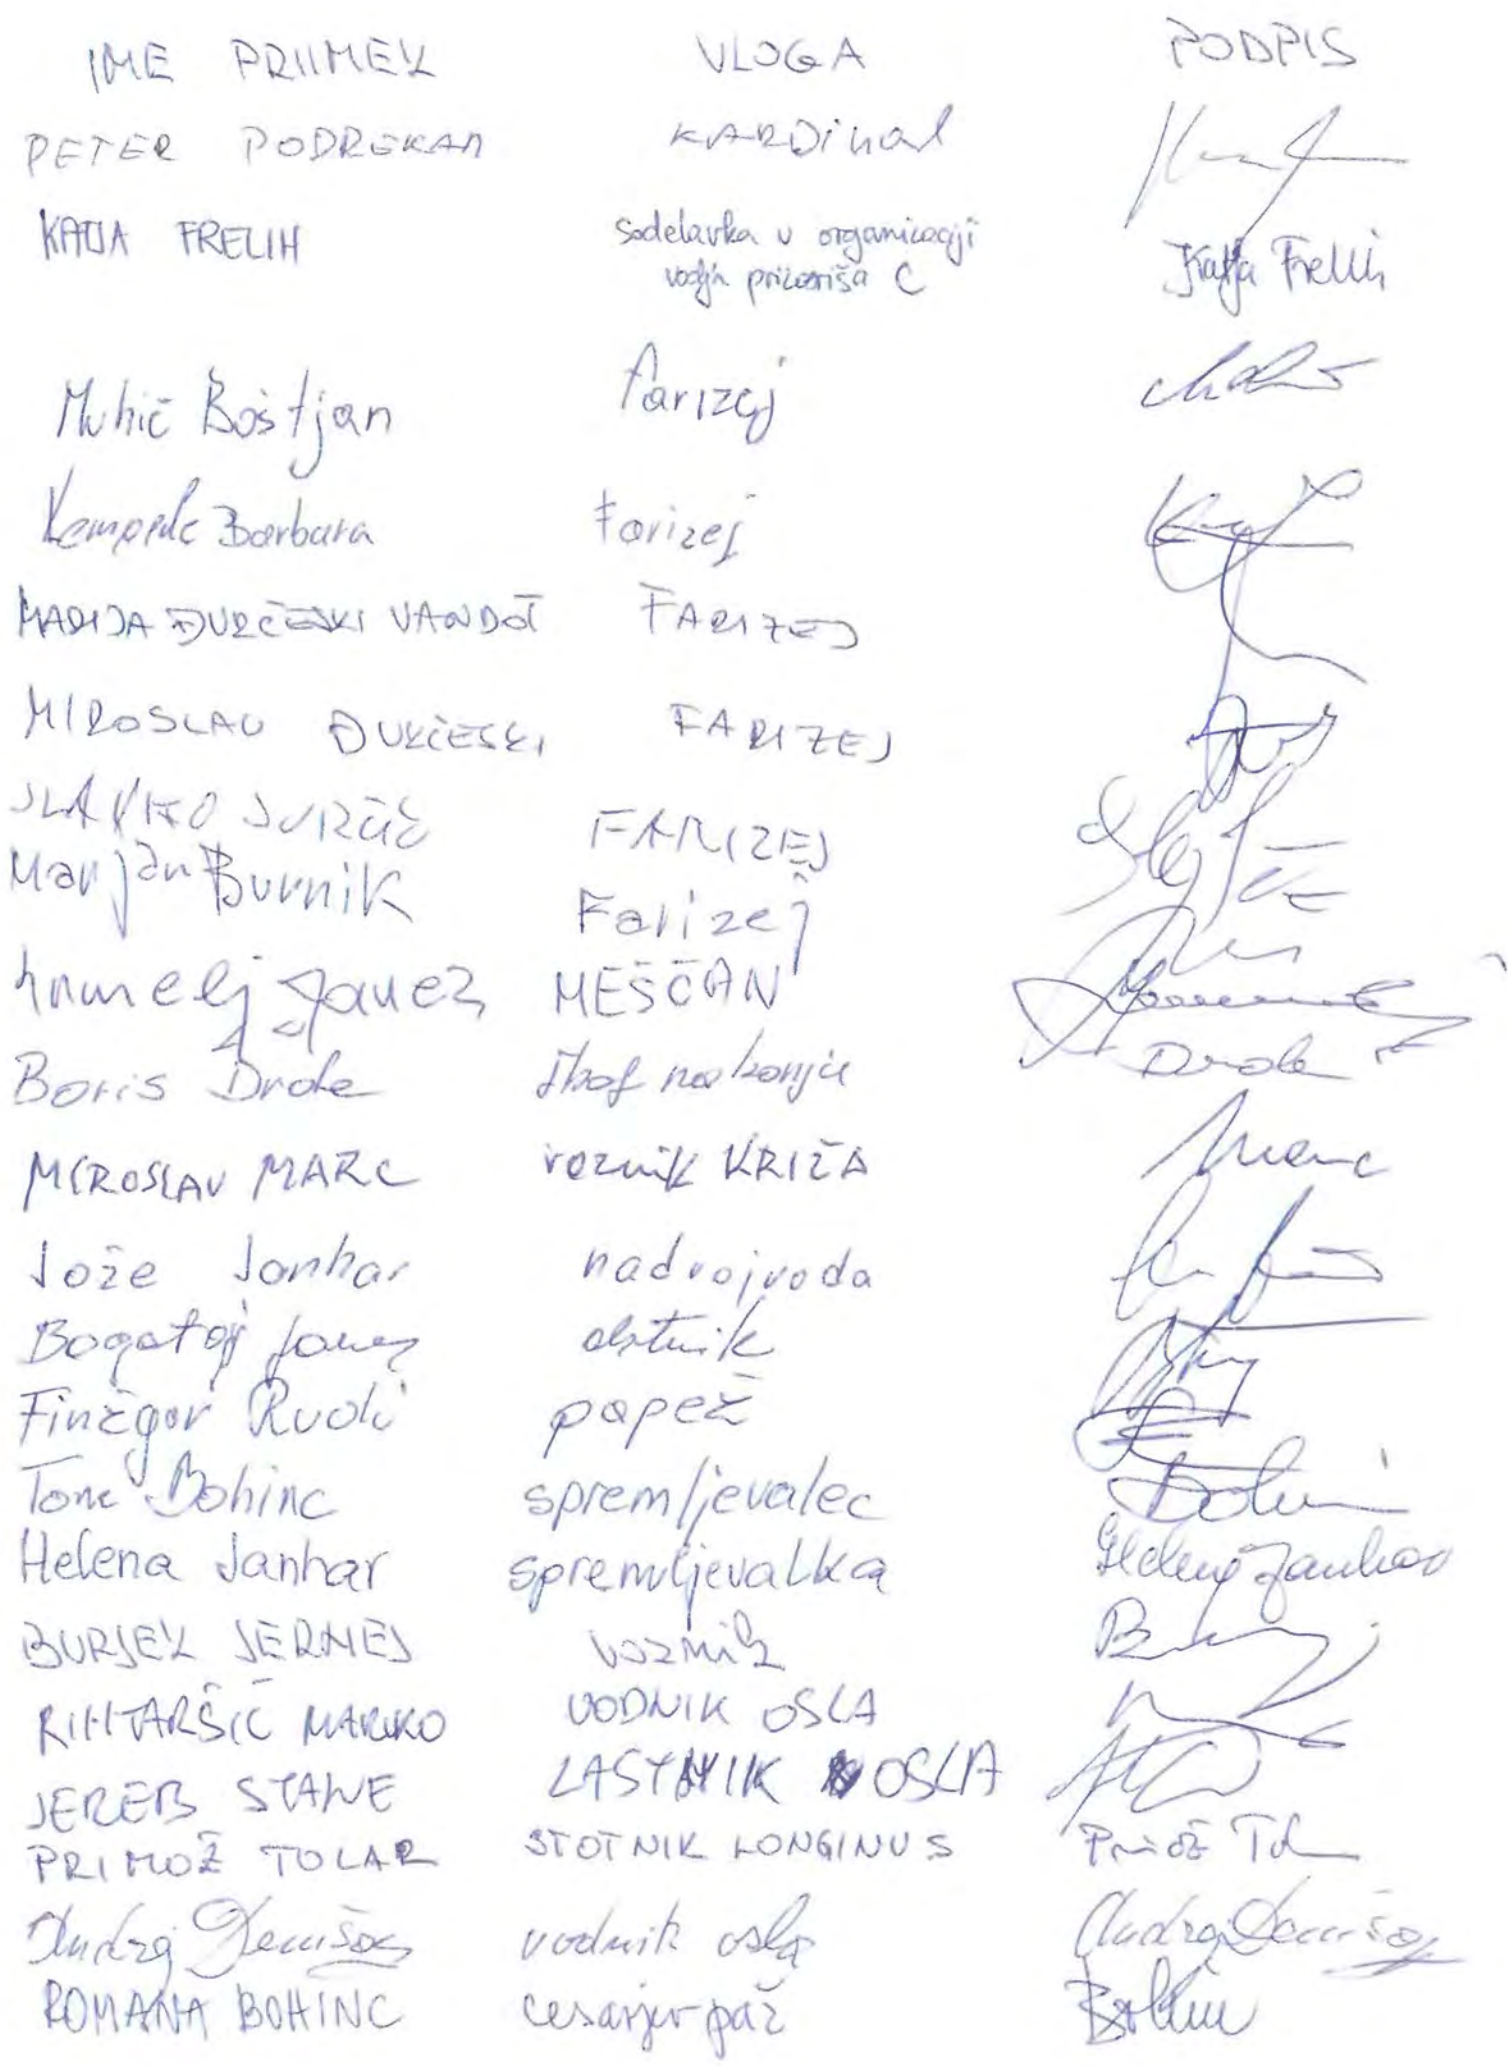 IME PRIIMEK VLOGA PODPIS
PETER PODREKAR KARDinal
KATJA FRELIH sodelavka v organizaciji Katja Frelih
vodja prizorišča C
Muhič Boštjan farizej
Barbara Farizej
MARIJA ĐUKČESKI VANDOT FARIZEJ
MIROSLAV ĐUKČESKI FARIZEJ
SLAVKO JURČIČ FARIZEJ
Marjan Burnik Farizej
Krmelj Janez MEŠČAN
Boris Drole škof na konju Drole
MIROSLAV MARC voznik KRIŽA Marc
Jože Janhar nadvojvoda
Bogataj Janez
Finžgar Rudi papež
Tone Bohinc spremljevalec
Helena Janhar spremljevalka Helena Janhar
BURJEK JERNEJ voznik
RIHTARŠIČ MARKO VODNIK OSLA
JEREB STANE LASTNIK OSLA
PRIMOŽ TOLAR STOTNIK LONGINUS Primož
Andrej Demšar vodnik osla Andrej Demšar
ROMANA BOHINC cesarjev paž Bohinc